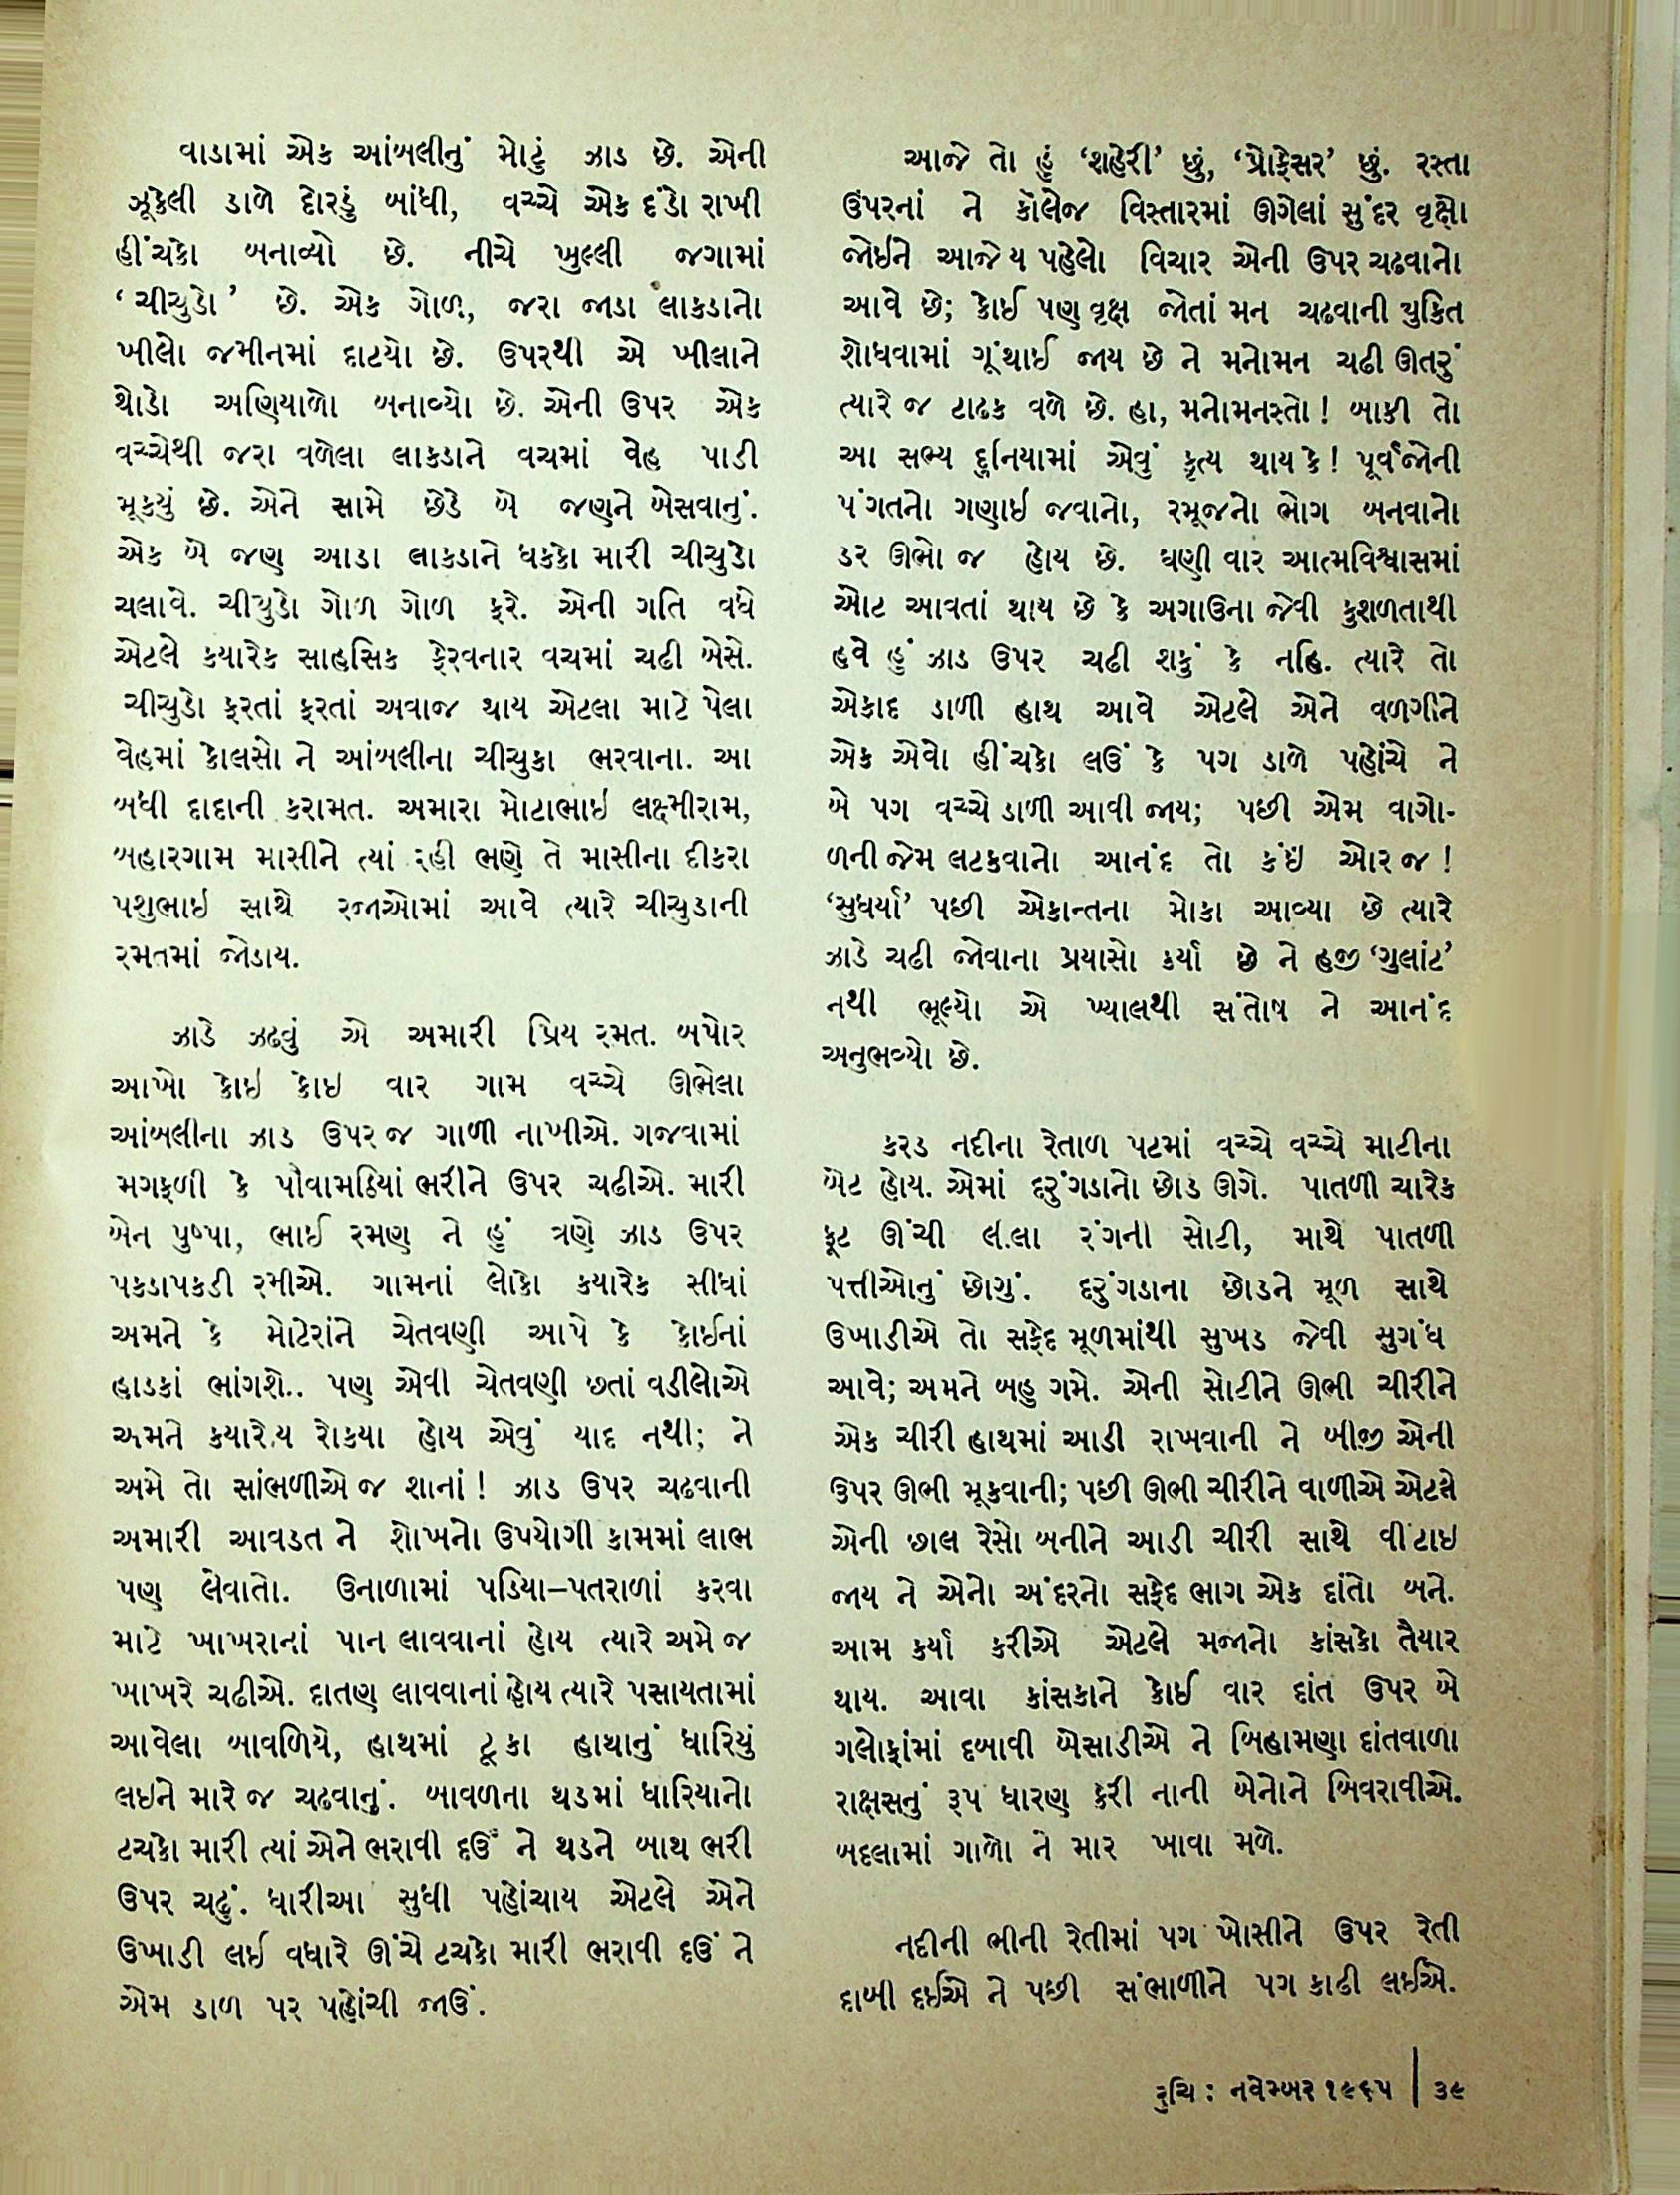 વાડામાં એક આંબલીનું મોટું ઝાડ છે. એની
ઝૂકેલી ડાળે દોરડું બાંધી, વચ્ચે એક દંડો રાખી
હીંચકો બનાવ્યો છે. નીચે ખુલ્લી જગામાં
‘ચીચુડો’ છે. એક ગોળ, જરા જાડા લાકડાનો
ખીલો જમીનમાં દાટયો છે. ઉપરથી એ ખીલાને
થોડો અણિયાળો બનાવ્યો છે. એની ઉપર એક
વચ્ચેથી જરા વળેલા લાકડાને વચમાં વેહ પાડી
મૂકયું છે. એને સામે છેડે બે જણને બેસવાનું.
એક બે જણ આડા લાકડાને ધક્કો મારી ચીચુડો
ચલાવે. ચીચુડો ગોળ ગોળ ફરે. એની ગતિ વધે
એટલે કયારેક સાહસિક ફેરવનાર વચમાં ચઢી બેસે.
ચીચુડો ફરતાં ફરતાં અવાજ થાય એટલા માટે પેલા
વેહમાં કોલસો ને આંબલીના ચીચુકા ભરવાના. આ
બધી દાદાની કરામત. અમારા મોટાભાઇ લક્ષ્મીરામ,
બહારગામ માસીને ત્યાં રહી ભણે તે માસીના દીકરા
પશુભાઇ સાથે રજાઓમાં આવે ત્યારે ચીચુડાની
રમતમાં જોડાય.
ઝાડે ઝઢવું એ અમારી પ્રિય રમત. બપોર
આખો કોઇ કોઇ વાર ગામ વચ્ચે ઊભેલા
આંબલીના ઝાડ ઉપર જ ગાળી નાખીએ. ગજવામાં
મગફળી કે પૌવામઠિયાં ભરીને ઉપર ચઢીએ. મારી
બેન પુષ્પા, ભાઈ રમણ ને હું ત્રણે ઝાડ ઉપર
પકડાપકડી રમીએ. ગામનાં લોકો કયારેક સીધાં
અમને કે મોટેરાંને ચેતવણી આપે કે કોઈનાં
હાડકાં ભાંગશે.. પણ એવી ચેતવણી છતાં વડીલોએ
અમને કયારેય રોકયા હોય એવું યાદ નથી; ને
અમે તો સાંભળીએ જ શાનાં! ઝાડ ઉપર ચઢવાની
અમારી આવડત ને શોખનો ઉપયોગી કામમાં લાભ
પણ લેવાતો. ઉનાળામાં પડિયા–પતરાળાં કરવા
માટે ખાખરાનાં પાન લાવવાનાં હોય ત્યારે અમે જ
ખાખરે ચઢીએ. દાતણ લાવવાનાં હોય ત્યારે પસાયતામાં
આવેલા બાવળિયે, હાથમાં ટૂંકા હાથાનું ધારિયું
લઇને મારે જ ચઢવાનું. બાવળના થડમાં ધારિયાનો
ટચકો મારી ત્યાં એને ભરાવી દઉં ને થડને બાથ ભરી
ઉપર ચઢું. ધારીઆ સુધી પહોંચાય એટલે એને
ઉખાડી લઇ વધારે ઊંચે ટચકો મારી ભરાવી દઉં ને
એમ ડાળ પર પહોંચી જાઉં.
આજે તો હું ‘શહેરી’ છું, ‘પ્રોફેસર’ છું. રસ્તા
ઉપરનાં ને કૉલેજ વિસ્તારમાં ઊગેલાં સુંદર વૃક્ષો
જોઇને આજે ય પહેલો વિચાર એની ઉપર ચઢવાનો
આવે છે; કોઈ પણ વૃક્ષ જોતાં મન ચઢવાની યુકિત
શોધવામાં ગૂંથાઈ જાય છે ને મનોમન ચઢી ઊતરું
ત્યારે જ ટાઢક વળે છે. હા, મનોમનસ્તો! બાકી તો
આ સભ્ય દુનિયામાં એવું કૃત્ય થાય કે! પૂર્વજોની
પંગતનો ગણાઇ જવાનો, રમૂજનો ભોગ બનવાનો
ડર ઊભો જ હોય છે. ઘણી વાર આત્મવિશ્વાસમાં
ઓટ આવતાં થાય છે કે અગાઉના જેવી કુશળતાથી
હવે હું ઝાડ ઉપર ચઢી શકું કે નહિ. ત્યારે તો
એકાદ ડાળી હાથ આવે એટલે એને વળગીને
એક એવો હીંચકો લઉં કે પગ ડાળે પહોંચે ને
બે પગ વચ્ચે ડાળી આવી જાય; પછી એમ વાગો-
ળની જેમ લટકવાનો આનંદ તો કંઇ ઓર જ!
‘સુધર્યા’ પછી એકાન્તના મોકા આવ્યા છે ત્યારે
ઝાડે ચઢી જોવાના પ્રયાસો કર્યા છે ને હજી ‘ગુલાંટ’
નથી ભૂલ્યો એ ખ્યાલથી સંતોષ ને આનંદ
અનુભવ્યો છે.
કરડ નદીના રેતાળ પટમાં વચ્ચે વચ્ચે માટીના
બેટ હોય. એમાં દરુંગડાનો છોડ ઊગે. પાતળી ચારેક
ફૂટ ઊંચી લીલા રંગની સોટી, માથે પાતળી
પત્તીઓનું છોગું. દરુંગડાના છોડને મૂળ સાથે
ઉખાડીએ તો સફેદ મૂળમાંથી સુખડ જેવી સુગંધ
આવે; અમને બહુ ગમે. એની સોટીને ઊભી ચીરીને
એક ચીરી હાથમાં આડી રાખવાની ને બીજી એની
ઉપર ઊભી મૂકવાની; પછી ઊભી ચીરીને વાળીએ એટલે
એની છાલ રેસો બનીને આડી ચીરી સાથે વીંટાઇ
જાય ને એનો અંદરનો સફેદ ભાગ એક દાંતો બને.
આમ કર્યા કરીએ એટલે મજાનો કાંસકો તૈયાર
થાય. આવા કાંસકાને કોઈ વાર દાંત ઉપર બે
ગલોફાંમાં દબાવી બેસાડીએ ને બિહામણા દાંતવાળા
રાક્ષસનું રૂપ ધારણ કરી નાની બેનોને બિવરાવીએ.
બદલામાં ગાળો ને માર ખાવા મળે.
નદીની ભીની રેતીમાં પગ ખોસીને ઉપર રેતી
દાબી દઈએ ને પછી સંભાળીને પગ કાઢી લઈએ.
રુચિ : નવેમ્બર ૧૯૬૫ | ૩૯